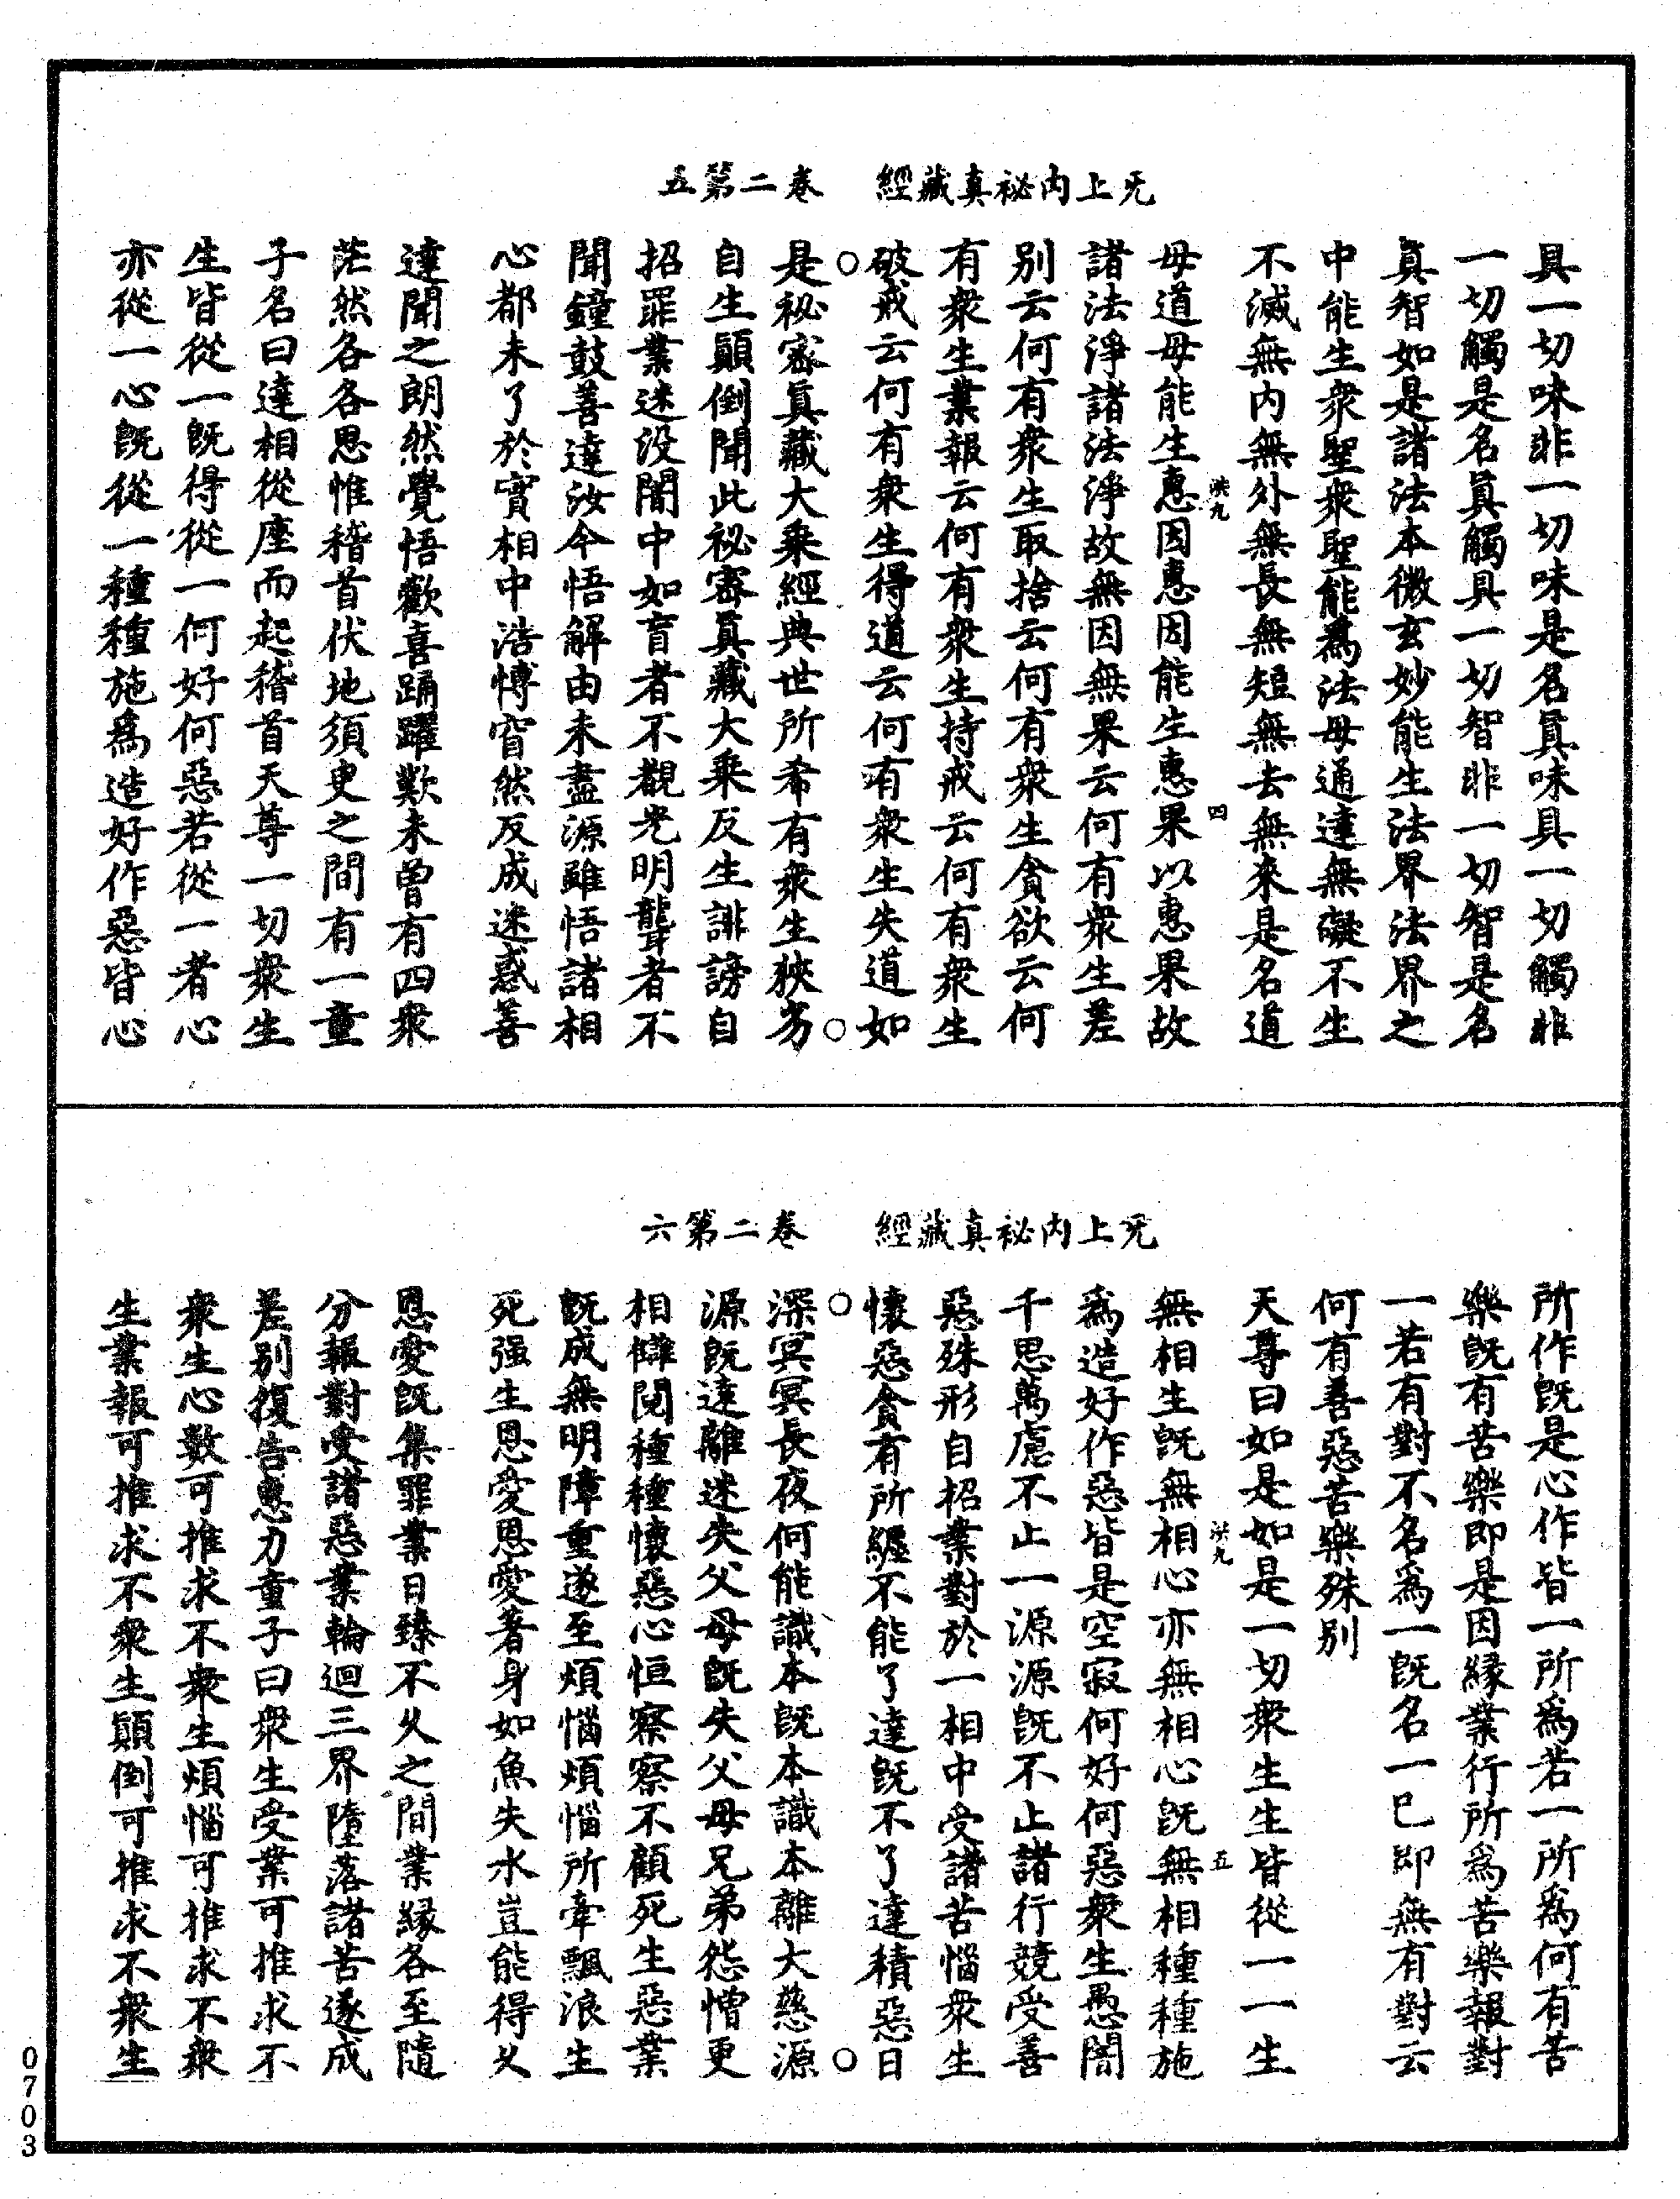 无上内祕真藏經　卷二第五
具一切味非一切味是名真味具一切觸非
一切觸是名真觸具一切智非一切智是名
真智如是諸法本微玄妙能生法界法界之
中能生衆聖衆聖能爲法母通達無礙不生
不滅無内無外無長無短無去無來是名道
洪九　四
母道母能生惠因惠因能生惠果以惠果故
諸法淨諸法淨故無因無果云何有衆生差
别云何有衆生取捨云何有衆生貪欲云何
有衆生業報云何有衆生持戒云何有衆生
破戒云何有衆生得道云何有衆生失道如
是秘密真藏大乗經典世所希有衆生狹劣
自生顛倒聞此祕密真藏大乗反生誹謗自
招罪業迷没闇中如盲者不覩光明聾者不
聞鐘鼓善達汝今悟解由未盡源雖悟諸相
心都未了於實相中浩博窅然反成迷惑善
達聞之朗然覺悟歡喜踊躍歎未曾有四衆
茫然各各思惟稽首伏地須臾之間有一童
子名曰達相從座而起稽首天尊一切衆生
生皆從一既得從一何好何惡若從一者心
亦從一心既從一種種施爲造好作惡皆心
无上内祕真藏經　卷二第六
所作既是心作皆一所爲若一所爲何有苦
樂既有苦樂即是因縁業行所爲苦樂報對
一若有對不名爲一既名一已即無有對云
何有善惡苦樂殊别
天尊曰如是如是一切衆生生皆從一一生
洪九　五
無相生既無相心亦無相心既無相種種施
爲造好作惡皆是空寂何好何惡衆生愚闇
千思萬慮不止一源源既不止諸行競受善
惡殊形自招業對於一相中受諸苦惱衆生
懷惡貪有所纏不能了達既不了達積惡日
深冥冥長夜何能識本既本識本離大慈源
源既達離迷失父母既失父母兄弟怨憎更
相讎鬩種種懷惡心恒察察不顧死生惡業
既成無明障重遂至煩惱煩惱所牽飄浪生
死强生恩愛恩愛著身如魚失水豈能得久
恩愛既集罪業日臻不久之間業縁各至隨
分報對受諸惡業輪迴三界墮落諸苦遂成
差别復告惠力童子曰衆生受業可推求不
衆生心數可推求不衆生煩惱可推求不衆
生業報可推求不衆生顛倒可推求不衆生
0703